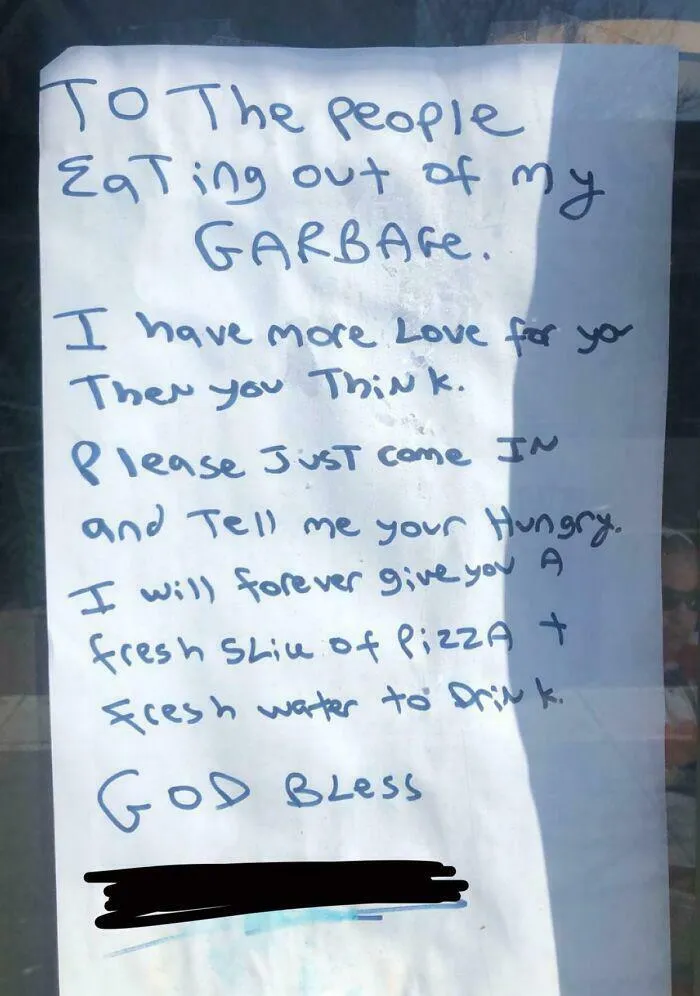 To The people
EaTing out of my
GARBAGe.
I have more Love for you
Then you Think.
Please JusT come IN
and Tell me your Hungry.
I will forever give you A
fresh Slice of PizzA +
fresh water to Drink.
GOD BLess